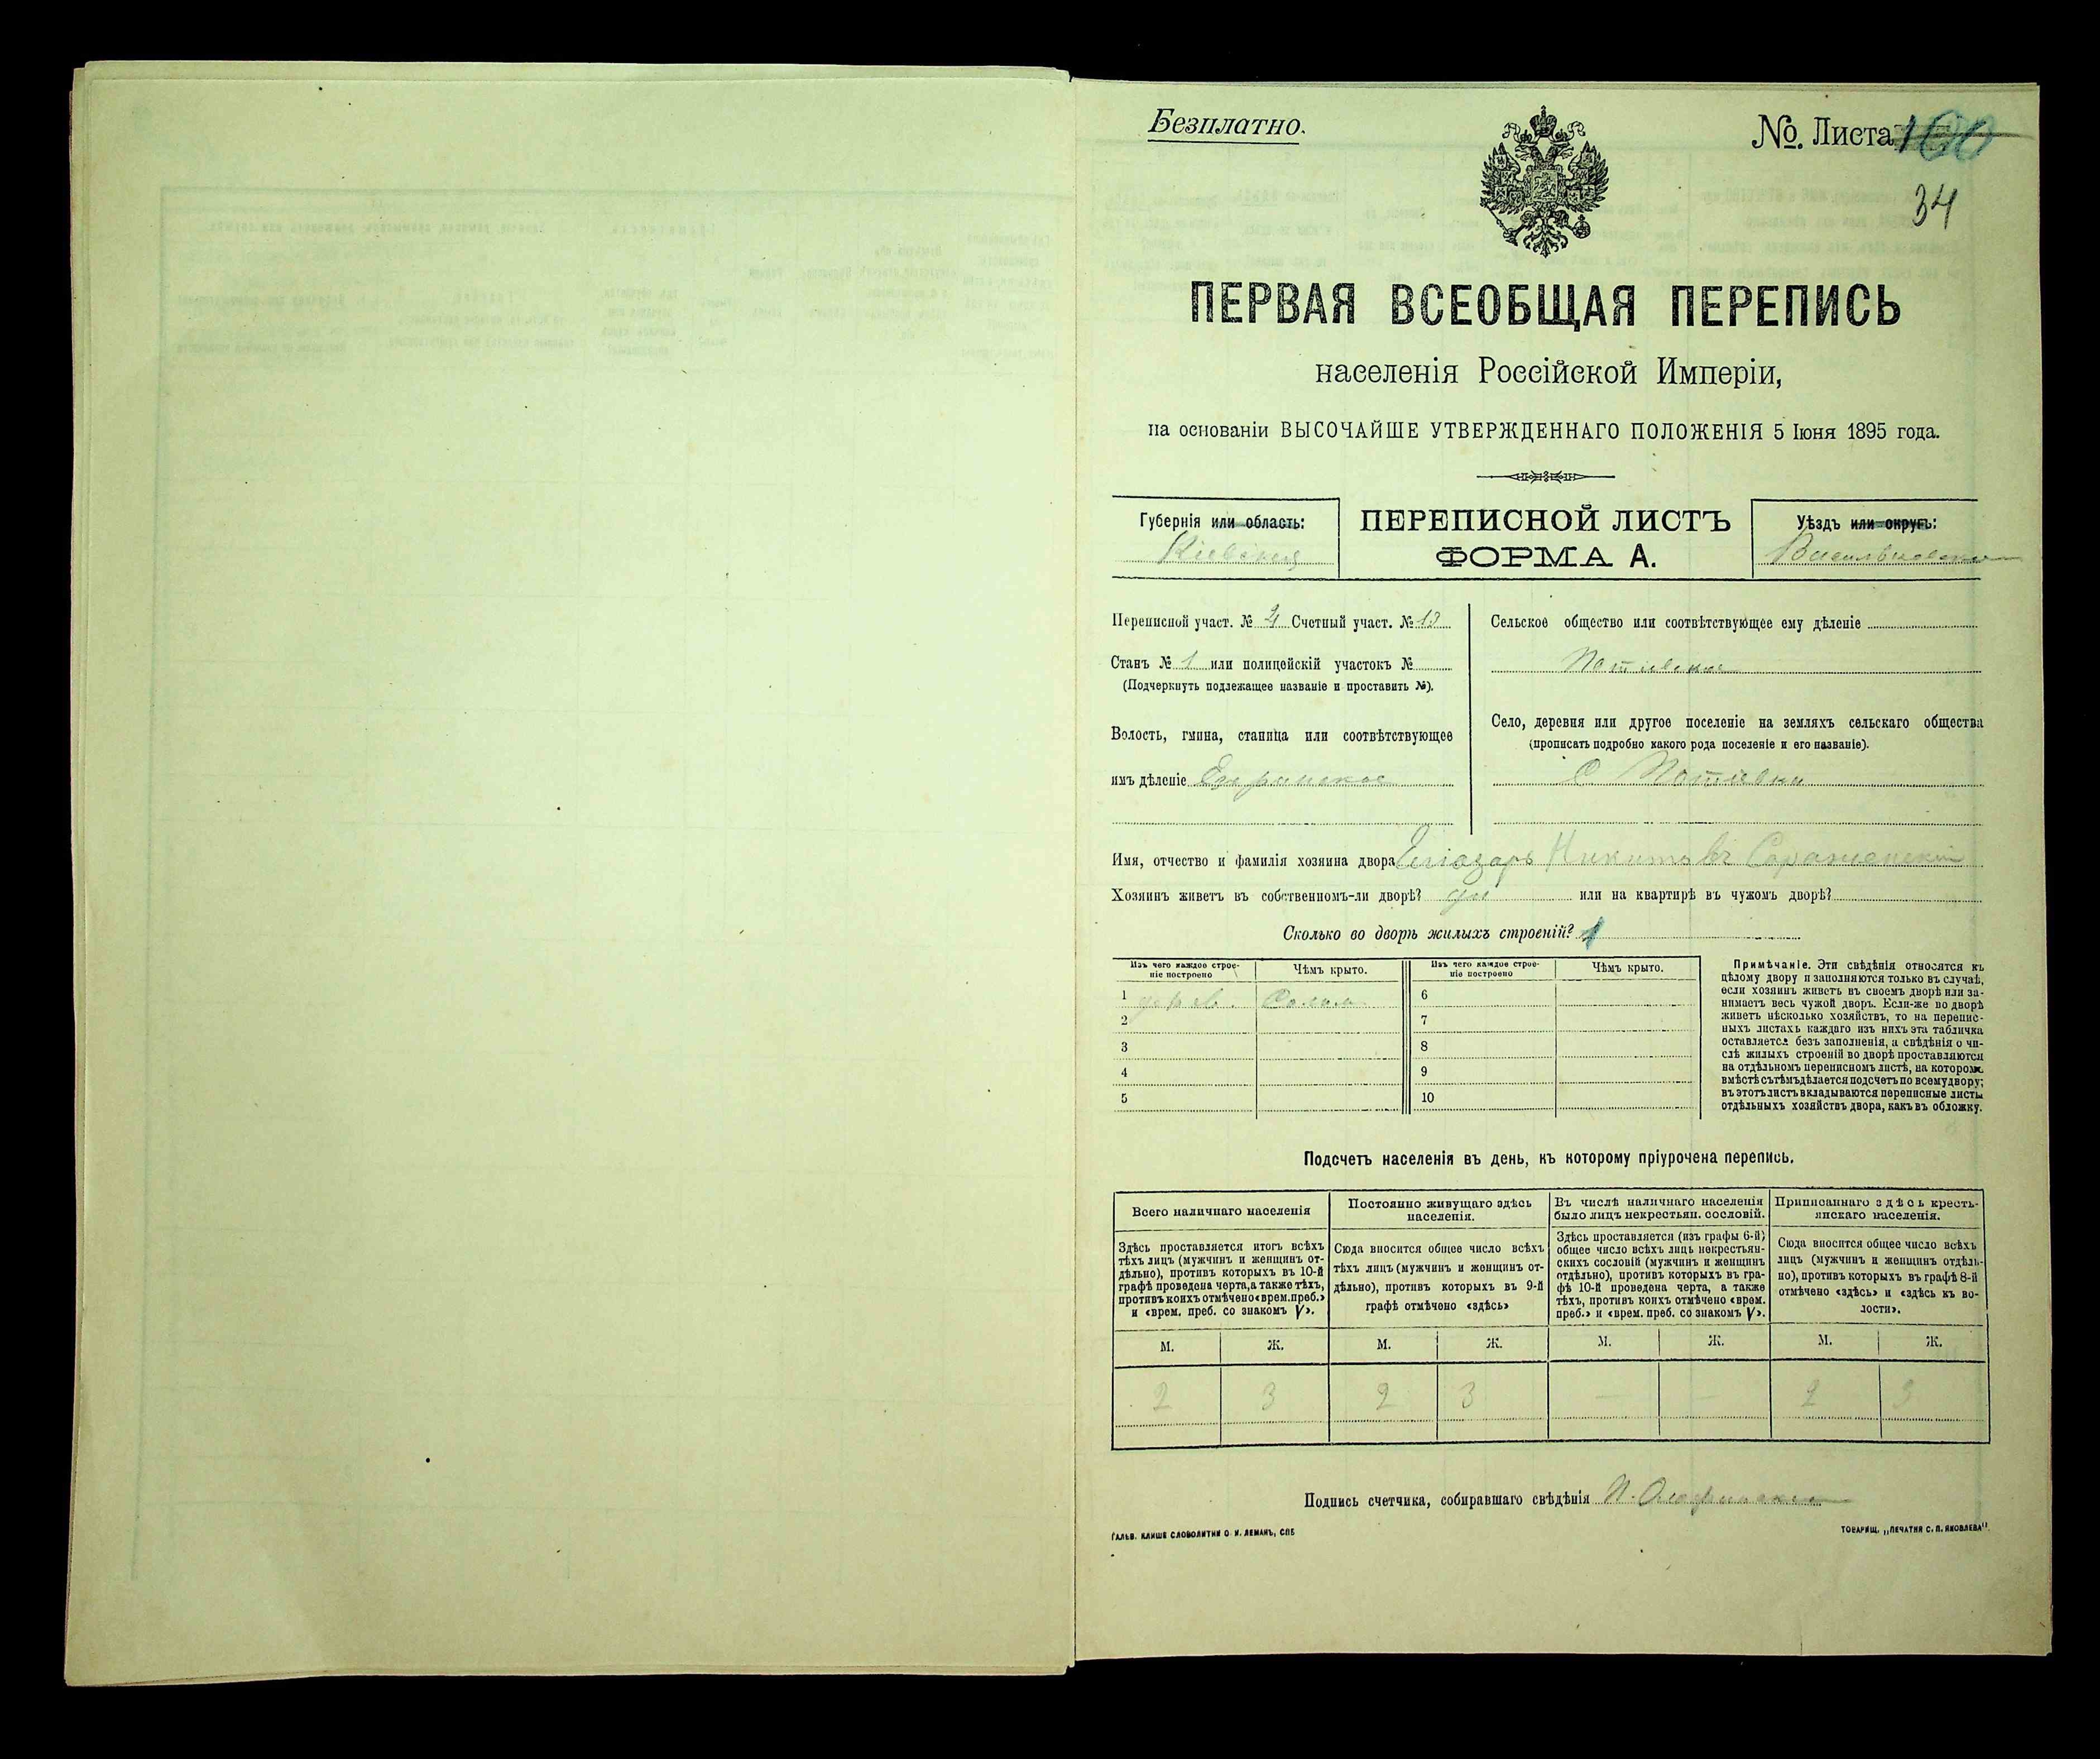 Безплатно.
№. Листа 160
34
ПЕРВАЯ ВСЕОБЩАЯ ПЕРЕПИСЬ
населенія Россійской Имперіи,
на основаніи ВЫСОЧАЙШЕ УТВЕРЖДЕННАГО ПОЛОЖЕНІЯ 5 Іюня 1895 года.
Губернія или область:
Кіевская
ПЕРЕПИСНОЙ ЛИСТЪ
ФОРМА А.
Уѣздъ или округъ:
Васильковскій
Переписной участ. № 4 Счетный участ. № 13
Станъ № 1 или полицейскій участокъ №
(Подчеркнуть подлежащее названіе и проставить №).
Волость, гмина, станица или соотвѣтствующее
имъ дѣленіе
Сельское общество или соотвѣтствующее ему дѣленіе
Потіевское
Село, деревня или другое поселеніе на земляхъ сельскаго общества
(прописать подробно какого рода поселеніе и его названіе).
С Потіевка
Имя, отчество и фамилія хозяина двора Еліазаръ Никитовъ
Хозяинъ живетъ въ собственномъ-ли дворѣ? да или на квартирѣ въ чужомъ дворѣ?
Сколько во дворѣ жилыхъ строеній? 1
Изъ чего каждое строеніе построено
Чѣмъ крыто.
Изъ чего каждое строеніе построено
Чѣмъ крыто.
1 дерев. Солом.
2
3
4
5
6
7
8
9
10
Примѣчаніе. Эти свѣдѣнія относятся къ
цѣлому двору и заполняются только въ случаѣ,
если хозяинъ живетъ въ своемъ дворѣ или за-
нимаетъ весь чужой дворъ. Если-же во дворѣ
живетъ нѣсколько хозяйствъ, то на перепис-
ныхъ листахъ каждаго изъ нихъ эта табличка
оставляется безъ заполненія, а свѣдѣнія о чи-
слѣ жилыхъ строеній во дворѣ проставляются
на отдѣльномъ переписномъ листѣ, на которомъ
вмѣстѣ съ тѣмъ дѣлается подсчетъ по всему двору;
въ этотъ листъ вкладываются переписные листы
отдѣльныхъ хозяйствъ двора, какъ въ обложку.
Подсчетъ населенія въ день, къ которому пріурочена перепись.
Всего наличнаго населенія
Здѣсь проставляется итогъ всѣхъ
тѣхъ лицъ (мужчинъ и женщинъ от-
дѣльно), противъ которыхъ въ 10-й
графѣ проведена черта, а также тѣхъ,
противъ коихъ отмѣчено «врем. преб.»
и «врем. преб. со знакомъ V».
Постоянно живущаго здѣсь
населенія.
Сюда вносится общее число всѣхъ
тѣхъ лицъ (мужчинъ и женщинъ от-
дѣльно), противъ которыхъ въ 9-й
графѣ отмѣчено «здѣсь»
Въ числѣ наличнаго населенія
было лицъ некрестьян. сословій.
Здѣсь проставляется (изъ графы 6-й)
общее число всѣхъ лицъ некрестьян-
скихъ сословій (мужчинъ и женщинъ
отдѣльно), противъ которыхъ въ гра-
фѣ 10-й проведена черта, а также
тѣхъ, противъ коихъ отмѣчено «врем.
преб.» и «врем. преб. со знакомъ V».
Приписаннаго здѣсь кресть-
янскаго населенія.
Сюда вносится общее число всѣхъ
лицъ (мужчинъ и женщинъ отдѣль-
но), противъ которыхъ въ графѣ 8-й
отмѣчено «здѣсь» и «здѣсь къ во-
лости».
М. Ж. М. Ж. М. Ж. М. Ж.
2 3 2 3 — — 2 3
Подпись счетчика, собиравшаго свѣдѣнія
ГАЛЬВ. КЛИШЕ СЛОВОЛИТНИ О. И. ЛЕМАНЪ, СПБ
ТОВАРИЩ. „ПЕЧАТНЯ С. П. ЯКОВЛЕВА".